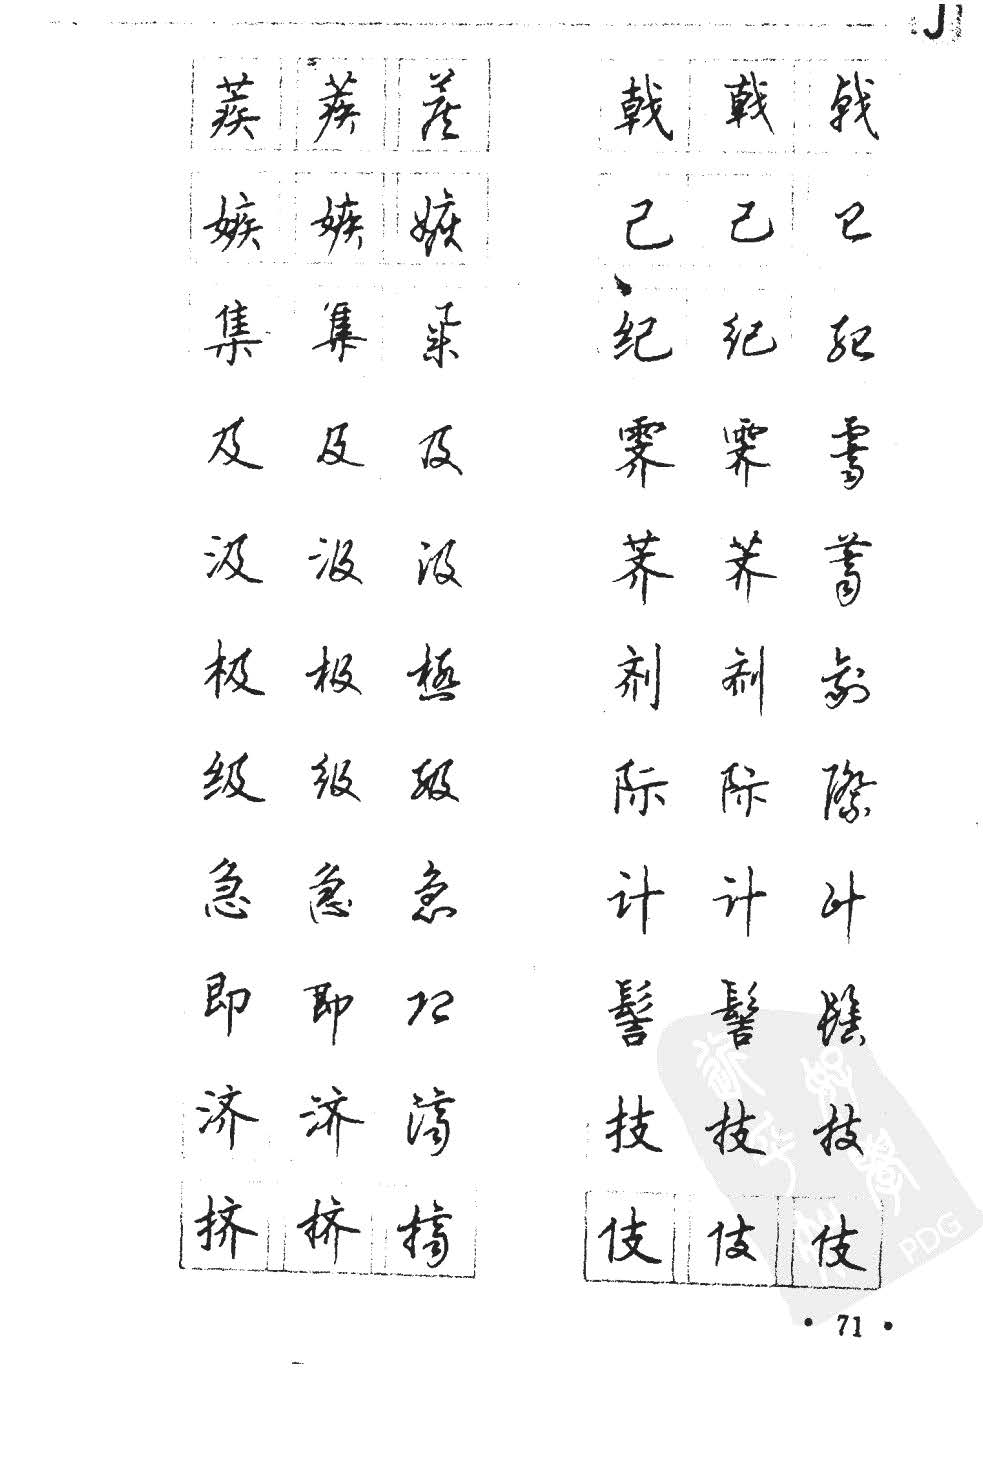 J
蒺 蒺 蒺 戟 戟 戟
嫉 嫉 嫉 己 己 己
集 集 集 纪 纪 紀
及 及 及 霁 霁 霽
汲 汲 汲 荠 荠 薺
极 极 極 剂 剂 劑
级 级 級 际 际 際
急 急 急 计 计 計
即 即 即 髻 髻 髻
济 济 濟 技 技 技
挤 挤 擠 伎 伎 伎
PDG
• 71 •